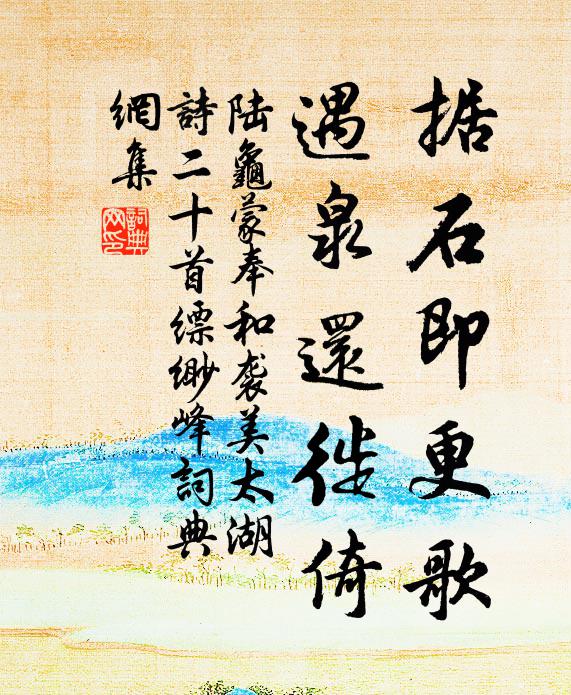 据石即更歌
遇泉還徙倚
陆龜蒙奉和袭美太湖
詩二十首縹緲峰詞典
網集
詞典
网印